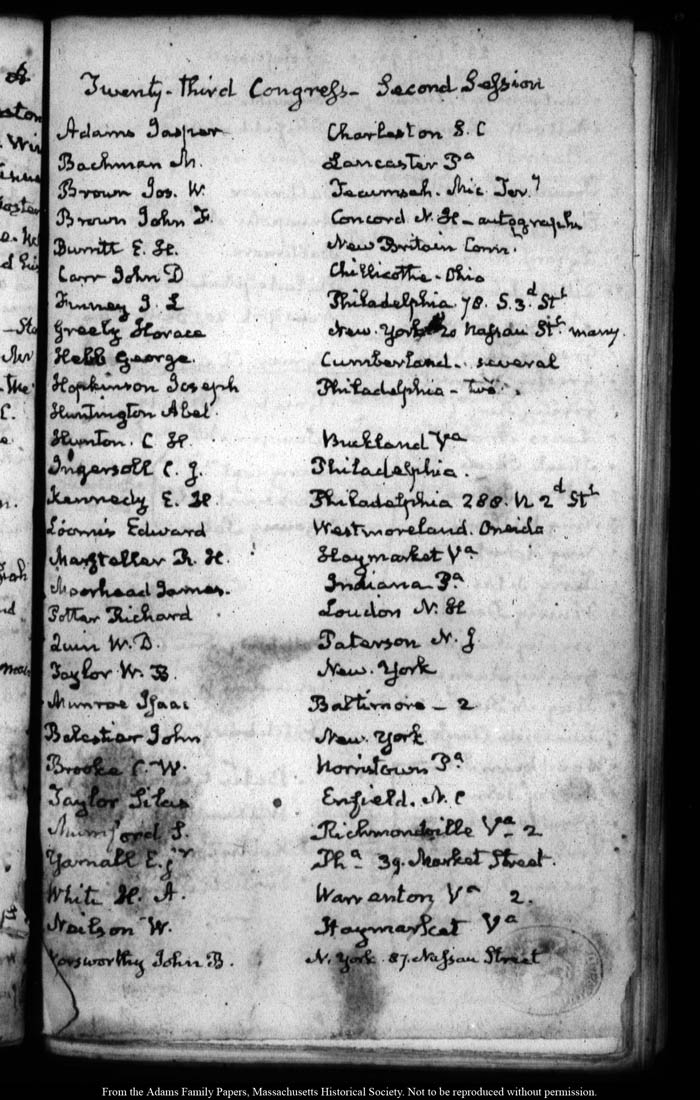 Twenty-third Congress - Second Session
Adams Jasper Charleston S. C
Bachman M. Lancaster Pa
Brown Jos. W. Tecumseh. Mic. Tery
Brown John F. Concord N. H - autographs
Burritt E. H. New Britain Conn.
Carr John D Chillicothe - Ohio
Finney J. L Philadelphia 78. S. 3d Stt
Greely Horace New. York 20 Nassau Stt many.
Hebb George. Cumberland. several
Hopkinson Joseph Philadelphia - two.
Huntington Abel.
Hunton. C H Buckland Va
Ingersoll C. J. Philadelphia.
Kennedy E. H Philadelphia 288. N 2d Stt
Loomis Edward Westmoreland. Oneida
Marsteller R. H. Haymarket Va
Moorhead James. Indiana Pa
Potter Richard Loudon N. H
Quin W. D. Paterson N. J.
Taylor W. B. New. York
Munroe Isaac Baltimore - 2
Balestier John New. York
Brooke C. W. Norristown Pa
Taylor Silas Enfield. N. C
Mumford S. Richmondville Va - 2
Yarnall E. jr Pha 39. Market Street.
White H. A. Warrenton Va 2.
Neilson W. Haymarket Va
John B. N. York 87. Nassau Street
From the Adams Family Papers, Massachusetts Historical Society. Not to be reproduced without permission.